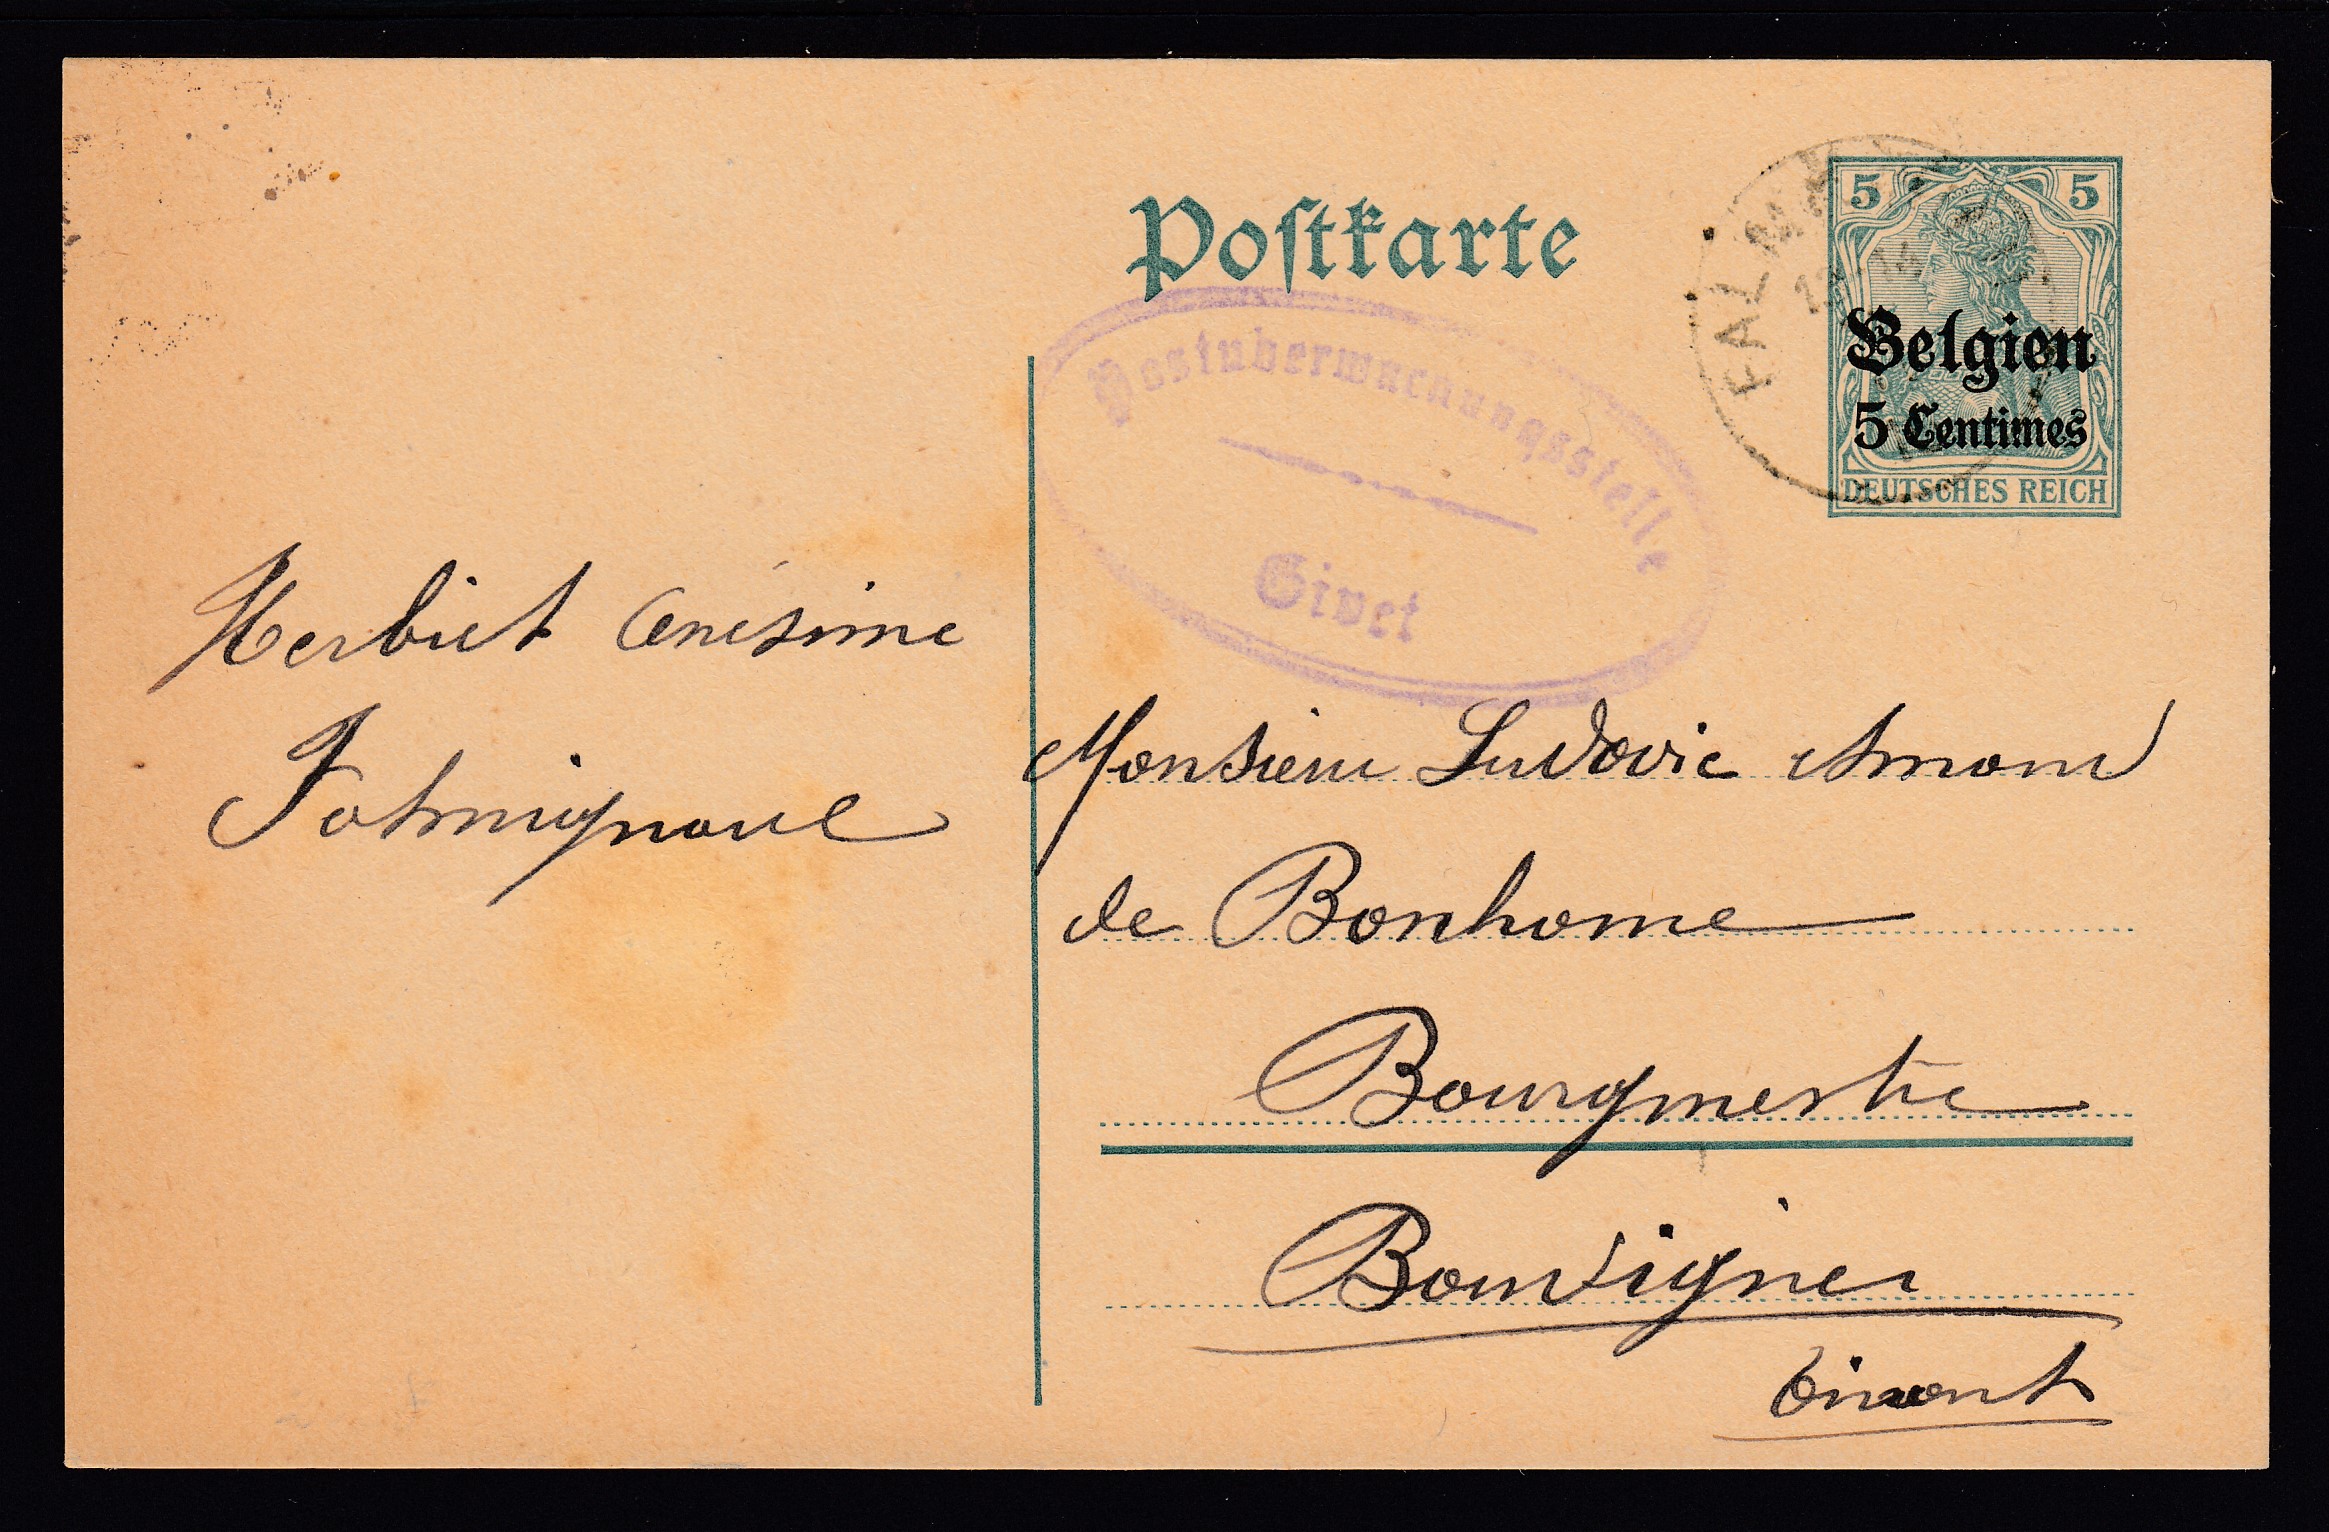 Postkarte
5 5
Belgien
5 Centimes
DEUTSCHES REICH
FALM
Postüberwachungsstelle
Givet
Herbiet Onésime
Falmignoul
Monsieur Ludovic Amand
de Bonhome
Bourgmestre
Bouvignes
Dinant